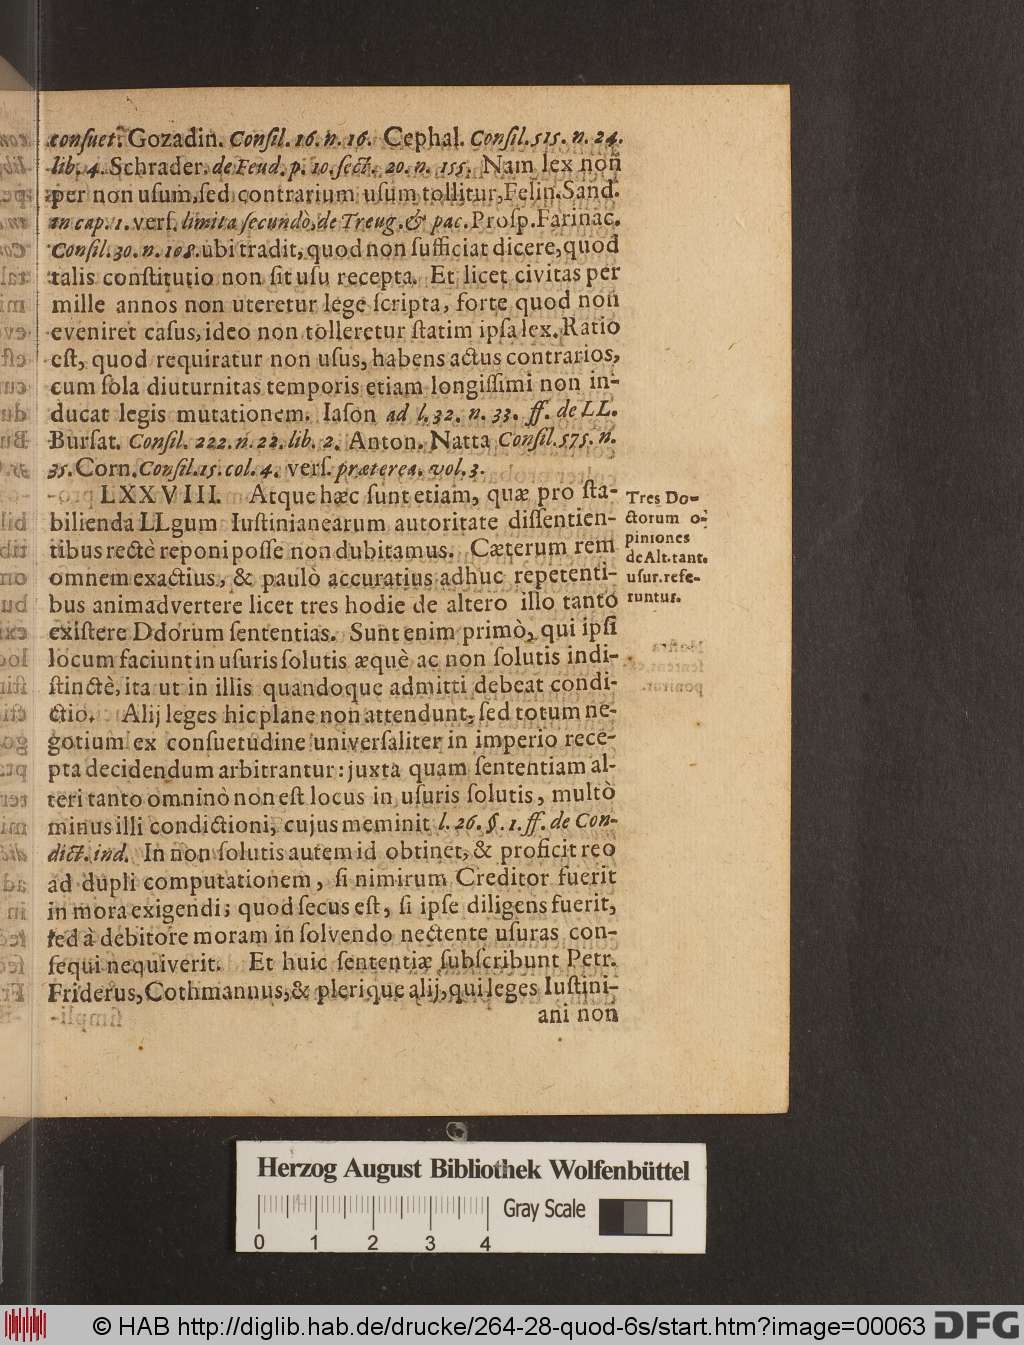 conſuet. Gozadin. Conſil. 16. n. 16. Cephal. Conſil. 515. n. 24.
lib. 4. Schrader. de Feud. p. 10. ſect. 20. n. 155. Nam lex non
per non uſum, ſed contrarium uſum tollitur, Felin. Sand.
in cap. 1. verſ. limita ſecundò, de Treug. & pac. Proſp. Farinac.
Conſil. 30. n. 108. ubi tradit, quod non ſufficiat dicere, quod
talis conſtitutio non ſit uſu recepta. Et licet civitas per
mille annos non uteretur lege ſcripta, forte quod non
eveniret caſus, ideo non tolleretur ſtatim ipſa lex. Ratio
eſt, quod requiratur non uſus, habens actus contrarios,
cum ſola diuturnitas temporis etiam longiſſimi non in-
ducat legis mutationem. Iaſon ad l. 32. n. 33. ff. de LL.
Burſat. Conſil. 222. n. 22. lib. 2. Anton. Natta Conſil. 575. n.
35. Corn. Conſil. 15. col. 4. verſ. præterea. vol. 3.
LXXVIII. Atque hæc ſunt etiam, quæ pro ſta-
bilienda LLgum Iuſtinianearum autoritate diſſentien-
tibus rectè reponi poſſe non dubitamus. Cæterum rem
omnem exactius, & paulò accuratius adhuc repetenti-
bus animadvertere licet tres hodie de altero illo tanto
exiſtere Ddorum ſententias. Sunt enim primò, qui ipſi
locum faciunt in uſuris ſolutis æquè ac non ſolutis indi-
ſtinctè, ita ut in illis quandoque admitti debeat condi-
ctio. Alij leges hic plane non attendunt, ſed totum ne-
gotium ex conſuetudine univerſaliter in imperio rece-
pta decidendum arbitrantur: juxta quam ſententiam al-
teri tanto omninò non eſt locus in uſuris ſolutis, multò
minus illi condictioni, cujus meminit l. 26. §. 1. ff. de Con-
dict. ind. In non ſolutis autem id obtinet, & proficit reo
ad dupli computationem, ſi nimirum Creditor fuerit
in mora exigendi; quod ſecus eſt, ſi ipſe diligens fuerit,
ſed à debitore moram in ſolvendo nectente uſuras con-
ſequi nequiverit. Et huic ſententiæ ſubſcribunt Petr.
Friderus, Cothmannus, & plerique alij, qui leges Iuſtini-
ani non
Tres Do-
ctorum o-
piniones
de Alt. tant.
uſur. refe-
runtur.
Herzog August Bibliothek Wolfenbüttel
Gray Scale
0 1 2 3 4
© HAB http://diglib.hab.de/drucke/264-28-quod-6s/start.htm?image=00063
DFG